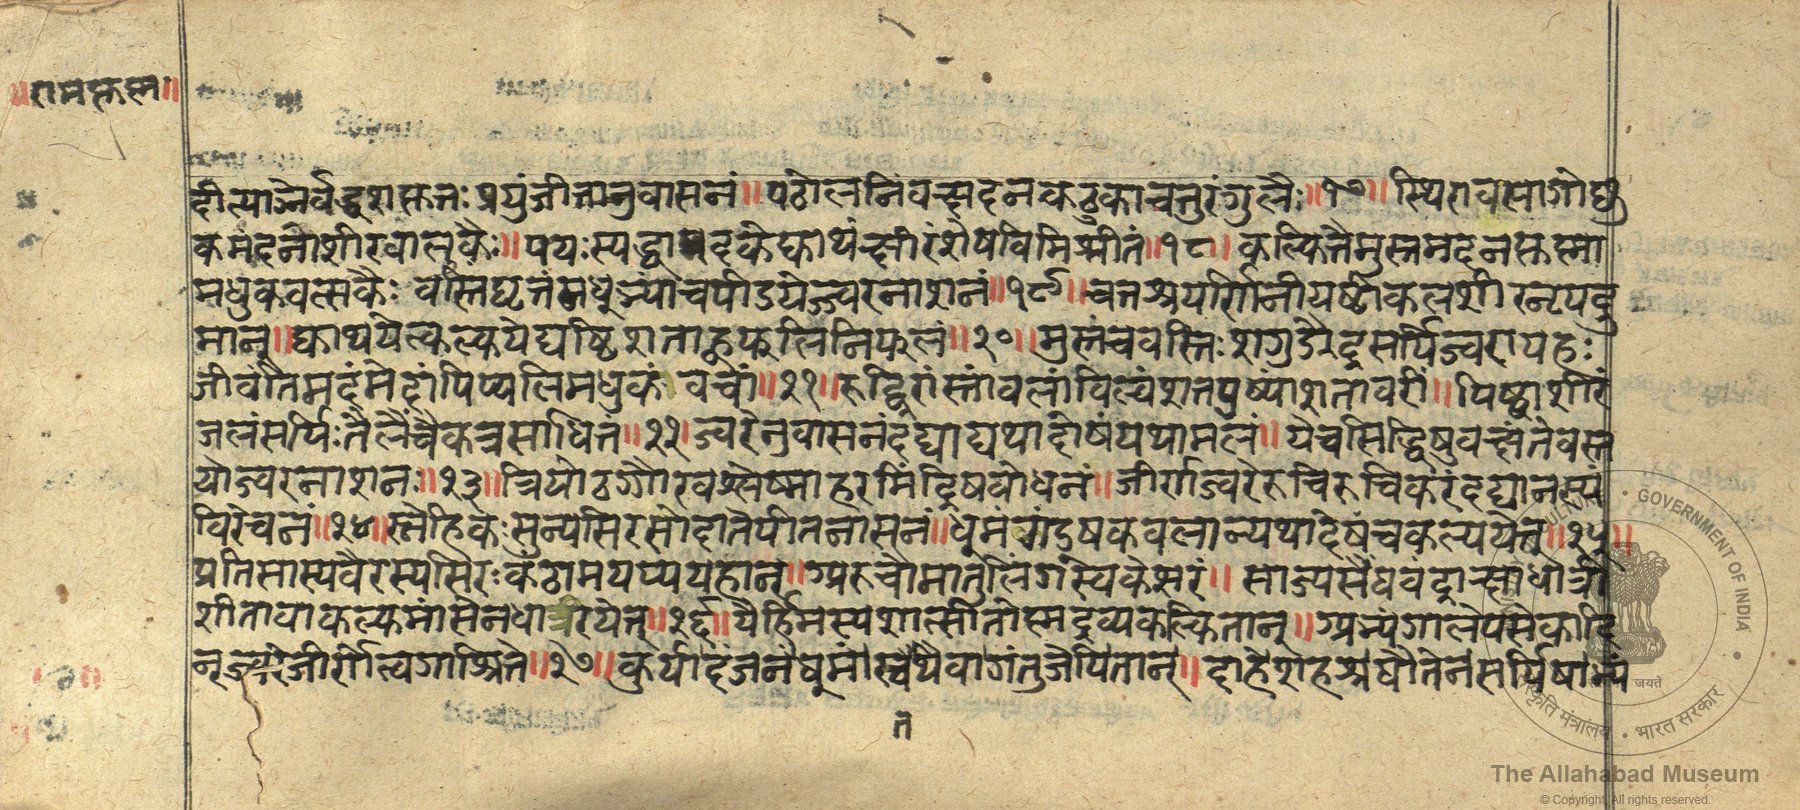 ॥रामकृष्म॥
दीत्याग्नेर्वद्धशकृतः प्रयुंजीतानुवासनं॥पठोलनिंवच्छदनकटुकाचतुरंगुलैः॥१७॥स्थिरावलागोक्षु
कमदनोशीरवालकैः॥पयःस्यर्द्धोदकेक्वाथंक्षीरंशेषविमिश्रीतं॥१८।कल्कितैमुस्तमदनकृष्मा
मधुकवत्सकैः वस्तिघृतंमधुभ्यांचपीडयेज्ज्वरनाशनं॥१९॥चतश्रपर्णिनीयष्टीकलशीरनृपद्रु
मान्॥क्वाथयेत्कल्कयेद्यष्टिशताह्वफलिनिफलं॥२०॥मुस्तंचवस्तिःशगुडक्षौद्रसर्पिज्वरापहः
जीवंतिमदंमेदांपिप्पलिमधुकं वचां॥२१॥रुद्धिरास्नांवलांविल्वंशतपुष्पांशतावरीं॥पिष्ट्वाशीरं
जलंसर्पिःतैलंचैकत्रसाधितं॥२२।ज्वरेनुवासनंदद्याद्यथादोषंयथामलं॥येचसिद्धिषुवक्ष्यंतेवस्त
योज्वरनाशनः॥२३॥त्रियोठगौरवश्लेष्माहरमिंद्रिषवोधनं॥जीर्णज्वरेरुचिरुचिकरंदद्यानस्यं
विरेचनं॥२४॥स्नैहिकःसुन्यसिरसोदातेपीतनासनं॥धुमगंडुषकवलान्यथादोषंचकल्पयेत्॥२५॥
प्रतिसास्यवैरस्यसिरःकंठामयप्ययहान्॥अरुचौमातुलिंगस्यकेसरं॥साज्यसैंधवंद्राक्षाधात्री
शीतावाकल्कमांसेनधारयेत्॥२६॥यैर्हिमस्यशात्सीतोस्मद्रव्यकल्कितान्॥अभ्यंगालेपसेकादि
न्ज्वरेजीर्णेत्वगाश्रिते॥२७॥कुर्यादंजनंधुमांस्तथैवागंतुजेपितान्॥दाहेशहश्रधौतेनसर्पिषाभ्यं
त
GOVERNMENT OF INDIA
संस्कृति मंत्रालय • भारत सरकार
The Allahabad Museum
© Copyright, All rights reserved.